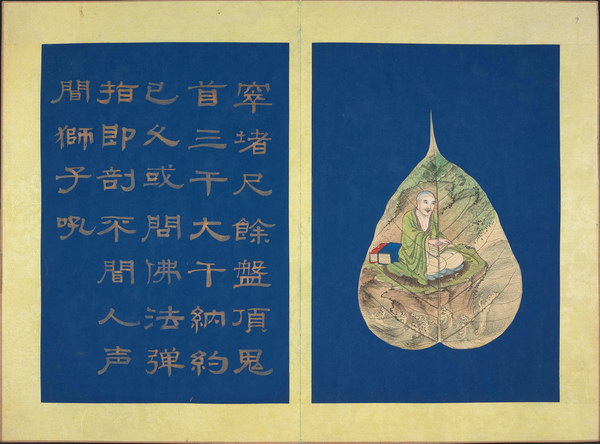 窣堵尺餘盤頂鬼
首三千大千納約
已久或問佛法弹
指即剖不聞人声
聞獅子吼